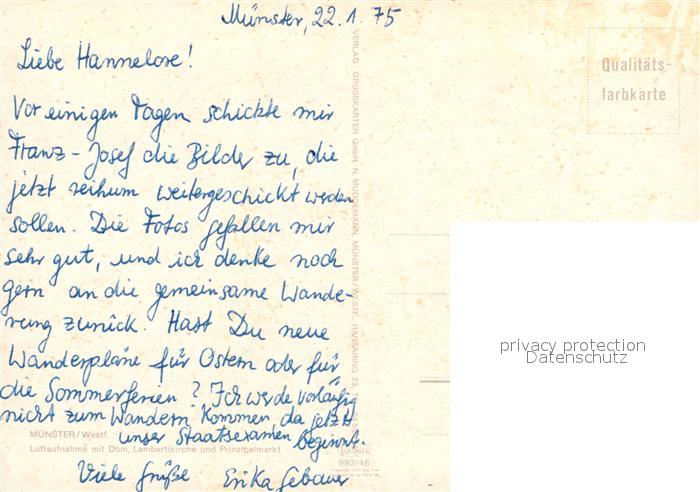 Münster, 22.1.75
Liebe Hannelore!
Vor einigen Tagen schickte mir
Franz-Josef die Bilder zu, die
jetzt reihum weitergeschickt werden
sollen. Die Fotos gefallen mir
sehr gut, und ich denke noch
gern an die gemeinsame Wande-
rung zurück. Hast Du neue
Wanderpläne für Ostern oder für
die Sommerferien? Ich werde vorläufig
nicht zum Wandern kommen, da jetzt
unser Staatsexamen beginnt.
Viele Grüße Erika Gebauer
MÜNSTER/Westf.
Luftaufnahme mit Dom, Lambertikirche und Prinzipalmarkt
993/46
VERLAG GRUSSKARTEN GmbH, N. MÜNSTER/WESTF. HANSARING
Qualitäts-
farbkarte
privacy protection
Datenschutz